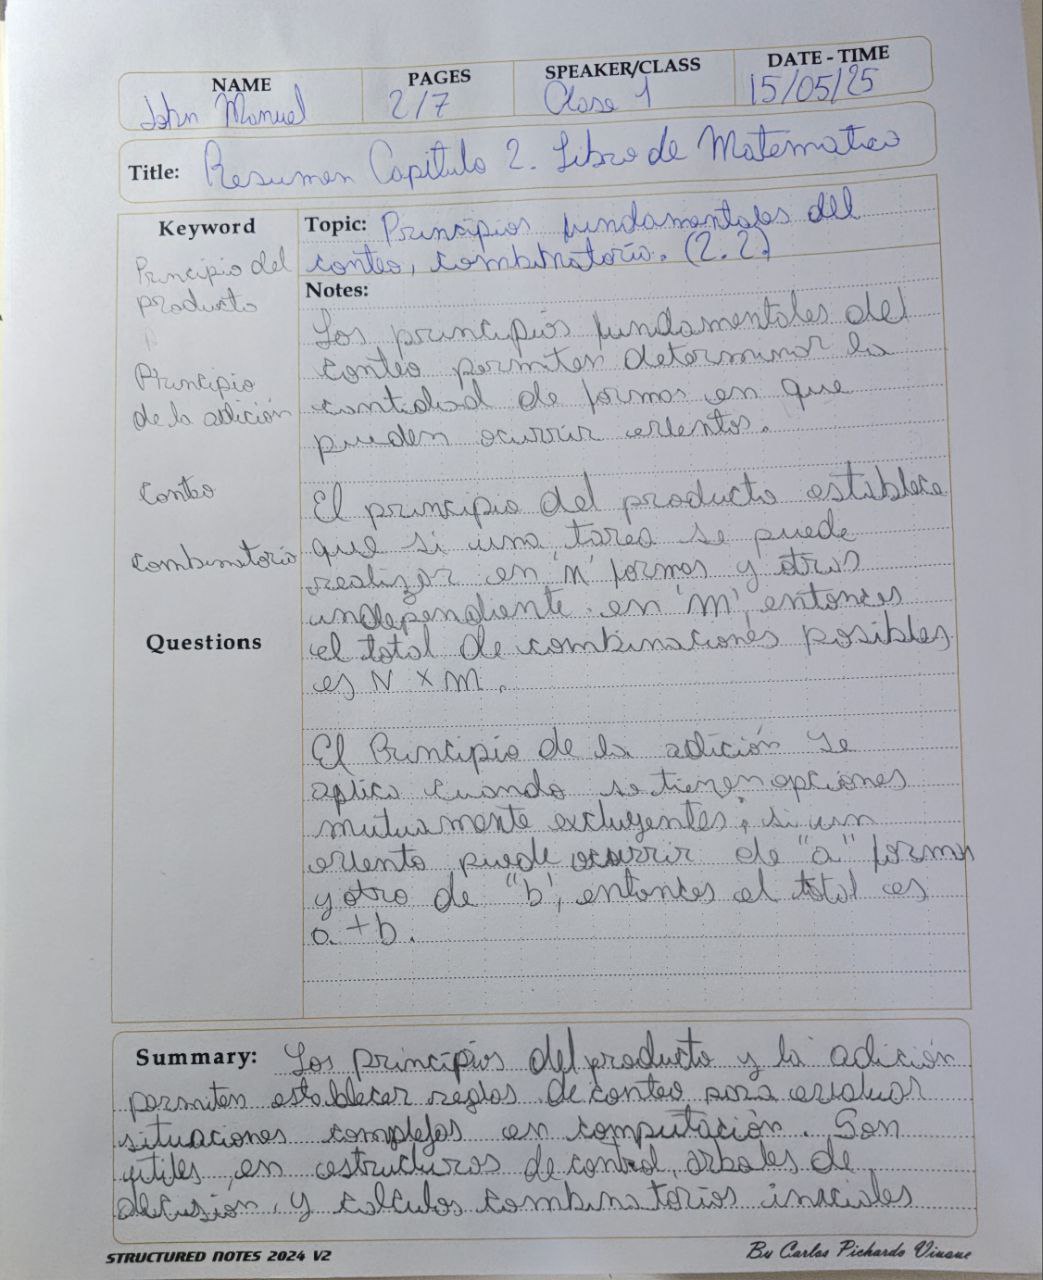 NAME PAGES SPEAKER/CLASS DATE - TIME
John Manuel 2/7 Clase 1 15/05/25
Title: Resumen Capítulo 2. Libro de Matematica
Keyword
Principio del
producto
Principio
de la adición
Conteo
Combinatorio
Questions
Topic: Principios fundamentales del
conteo, combinatorio. (2.2)
Notes:
Los principios fundamentales del
conteo permiten determinar la
cantidad de formas en que
pueden ocurrir eventos.
El principio del producto establece
que si una tarea se puede
realizar en 'n' formas y otros
independiente en 'm', entonces
el total de combinaciones posibles
es N x m.
El Principio de la adición se
aplica cuando se tienen opciones
mutuamente excluyentes; si un
evento puede ocurrir de "a" formas
y otro de "b", entonces el total es
a + b.
Summary: Los principios del producto y la adición
permiten establecer reglas de conteo para evaluar
situaciones complejas en computación. Son
útiles, en estructuras de control, árboles de
decisión, y calculos combinatorios iniciales
STRUCTURED NOTES 2024 V2 By Carlos Pichardo Viuque